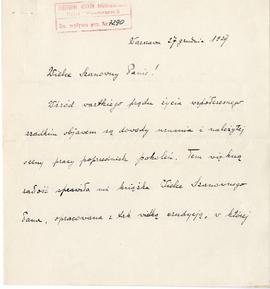 Nr 7290
Warszawa 27 grudnia 1929
Wielce Szanowny Panie!
Wśród wartkiego prądu życia współczesnego
rzadkim objawem są dowody uznania i należytej
oceny pracy poprzednich pokoleń. Tem większą
radość sprawiła mi książka Wielce Szanownego
Pana, opracowana z tak wielką erudycją, w której